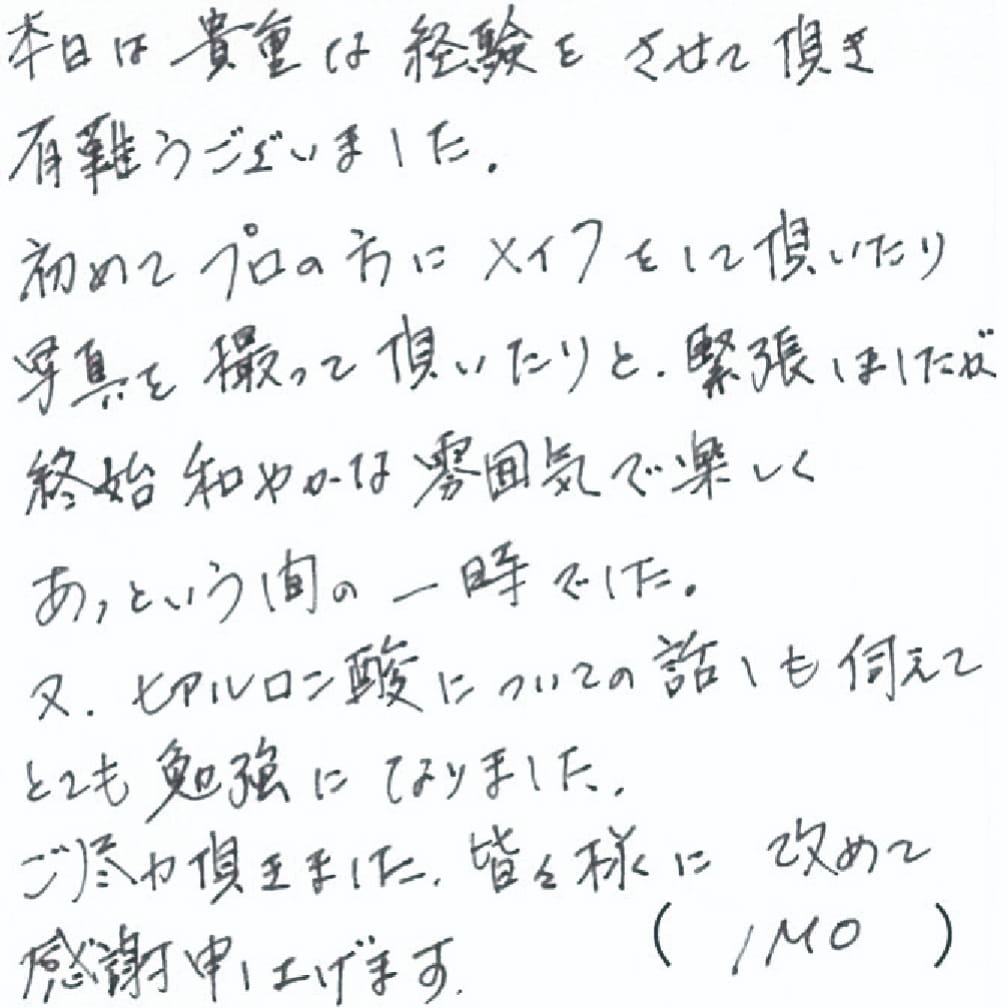 本日は貴重な経験をさせて頂き
有難うございました。
初めてプロの方にメイクをして頂いたり
写真を撮って頂いたりと、緊張しましたが
終始和やかな雰囲気で楽しく
あっという間の一時でした。
又、ヒアルロン酸についての話しも伺えて
とても勉強になりました。
ご尽力頂きました、皆々様に 改めて
感謝申し上げます。
( IMO )